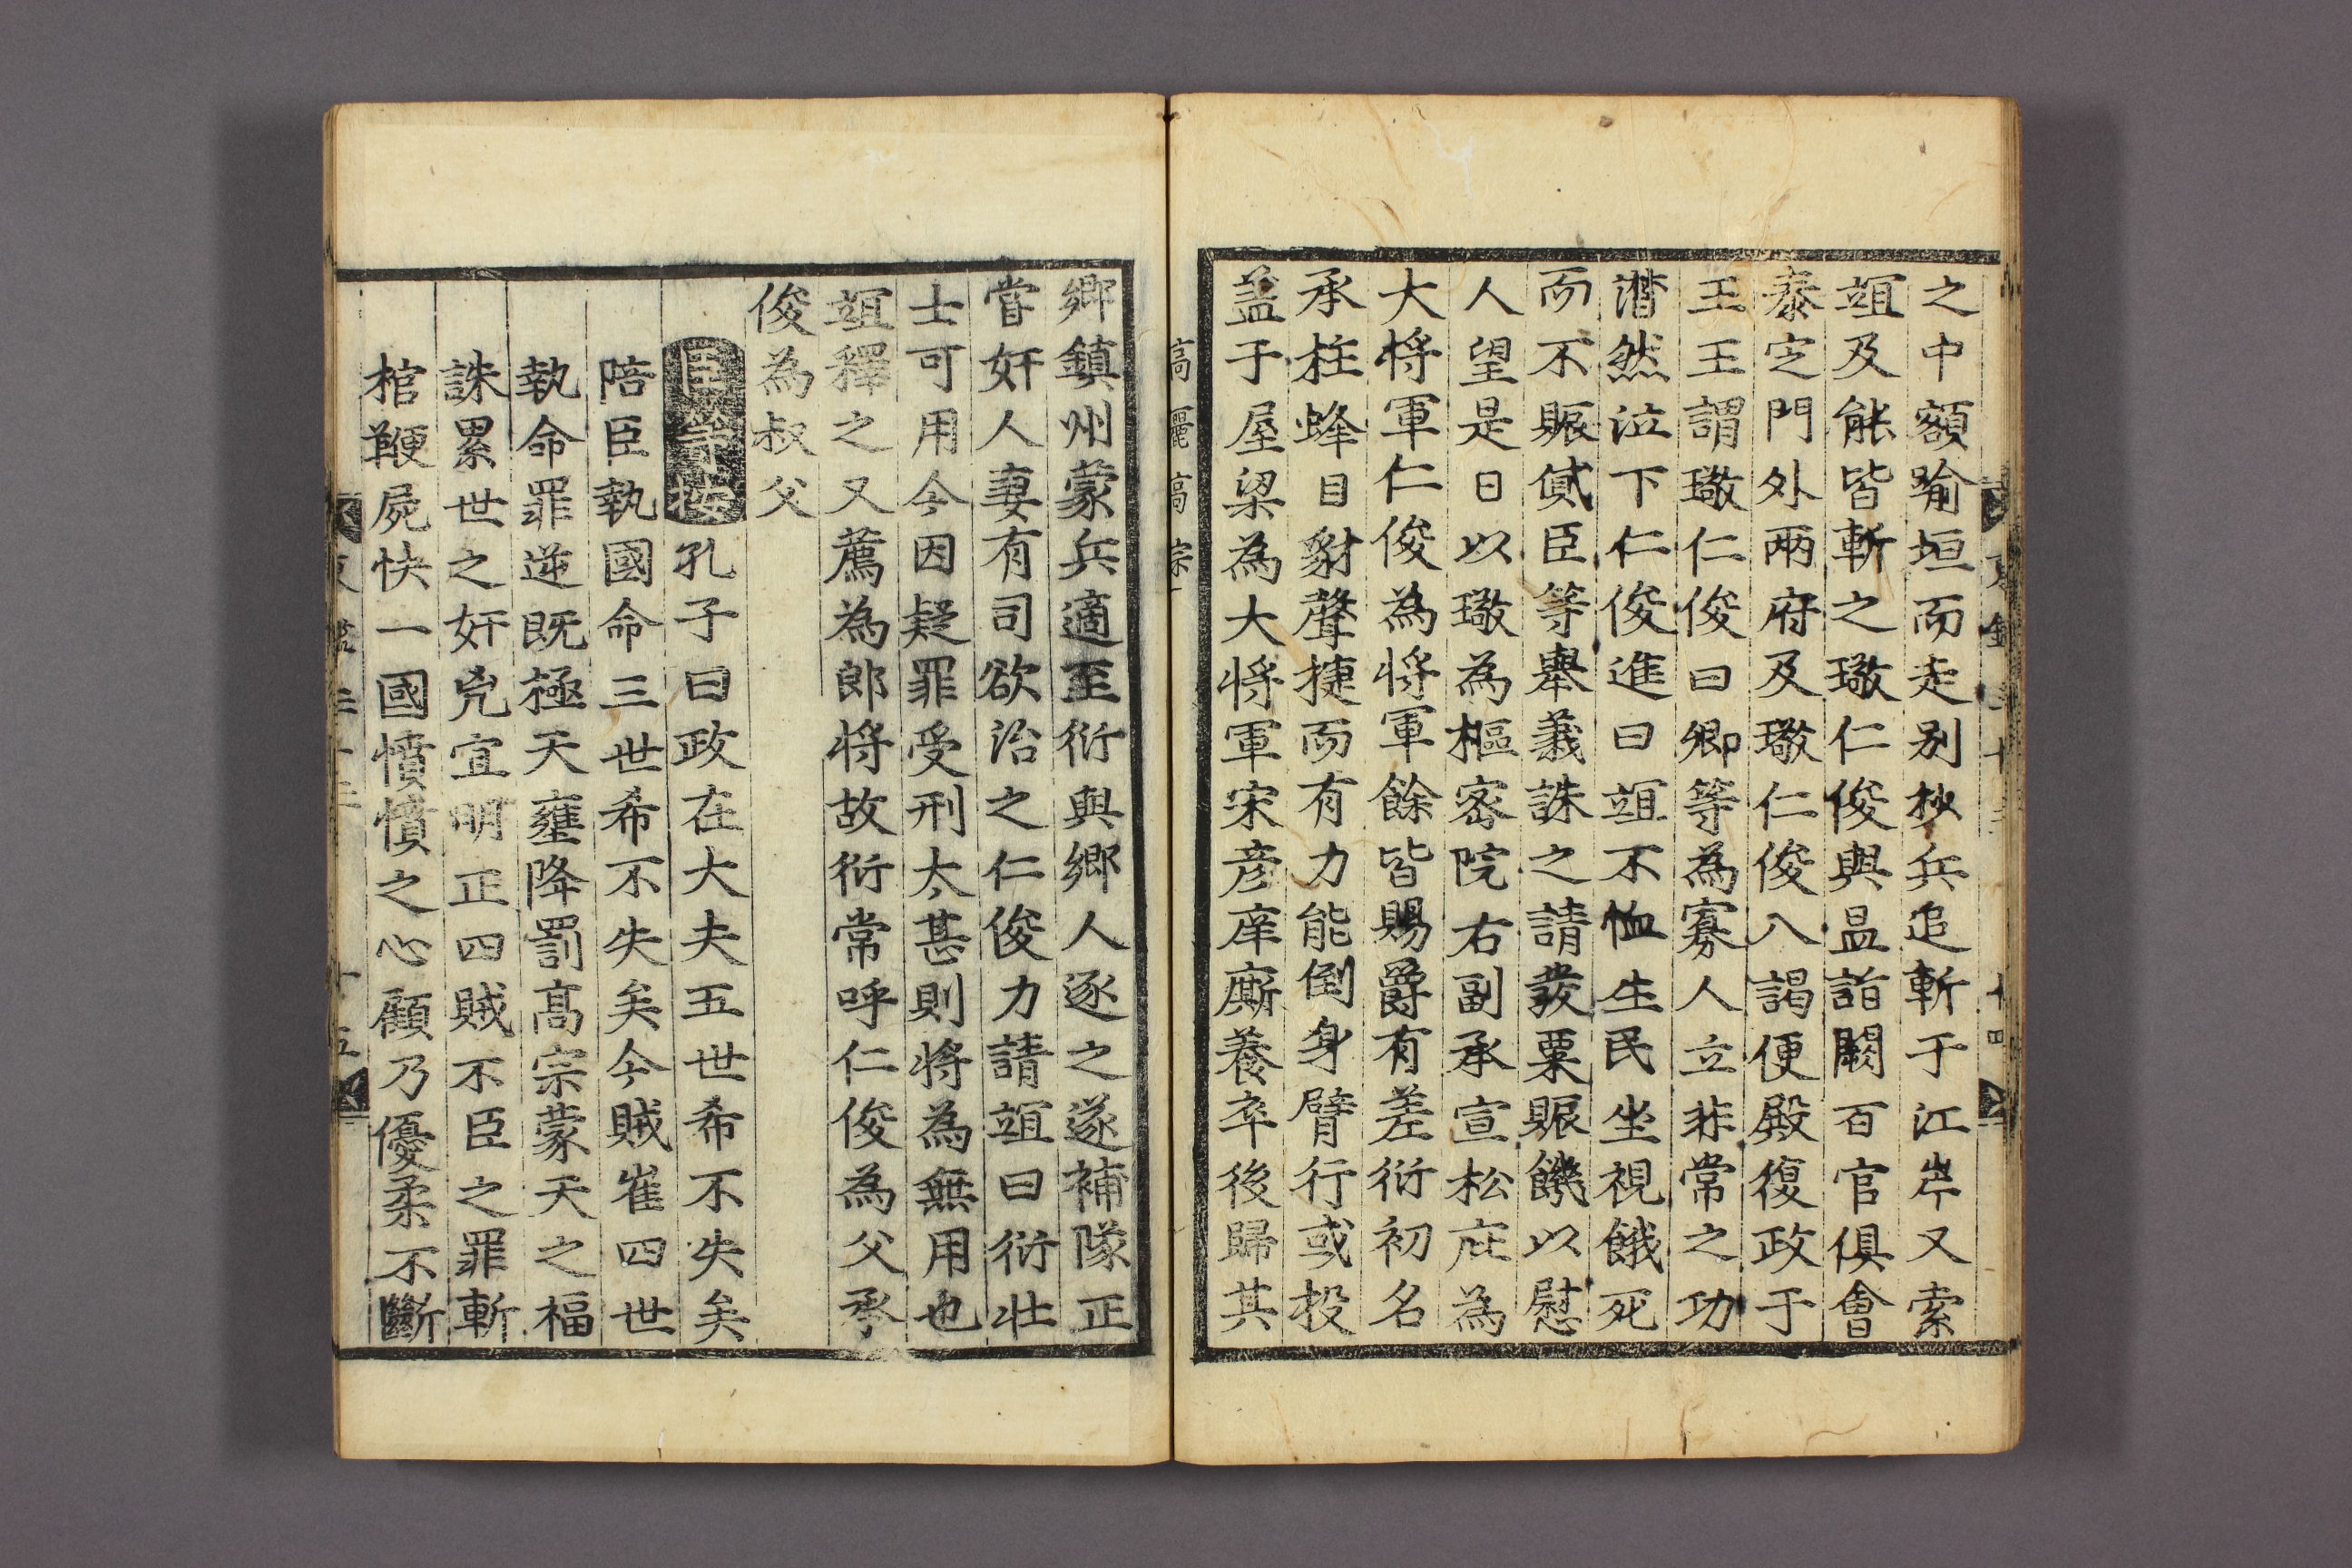 之中額踰垣而走别抄兵追斬于江岸又索
竩及能皆斬之璥仁俊與昷詣闕百官俱會
泰定門外兩府及璥仁俊入謁便殿復政于
王王謂璥仁俊曰卿等為寡人立非常之功
潸然泣下仁俊進曰竩不恤生民坐視餓死
而不賑貸臣等舉義誅之請發粟賑饑以慰
人望是日以璥為樞密院右副承宣松庇為
大将軍仁俊為将軍餘皆賜爵有差衍初名
承柱蜂目豺聲捷而有力能倒身臂行或投
盖于屋梁為大将軍宋彦庠廝養卒後歸其
高麗高宗
鄉鎮州蒙兵適至衍與鄉人逐之遂補隊正
嘗奸人妻有司欲治之仁俊力請竩曰衍壮
士可用今因疑罪受刑太甚則将為無用也
竩釋之又薦為郎将故衍常呼仁俊為父承
俊為叔父
臣等按孔子曰政在大夫五世希不失矣
陪臣執國命三世希不失矣今賊崔四世
執命罪逆既極天壅降罰髙宗蒙天之福
誅累世之奸兇宜明正四賊不臣之罪斬
棺鞭屍快一國憤憤之心顧乃優柔不斷
十五